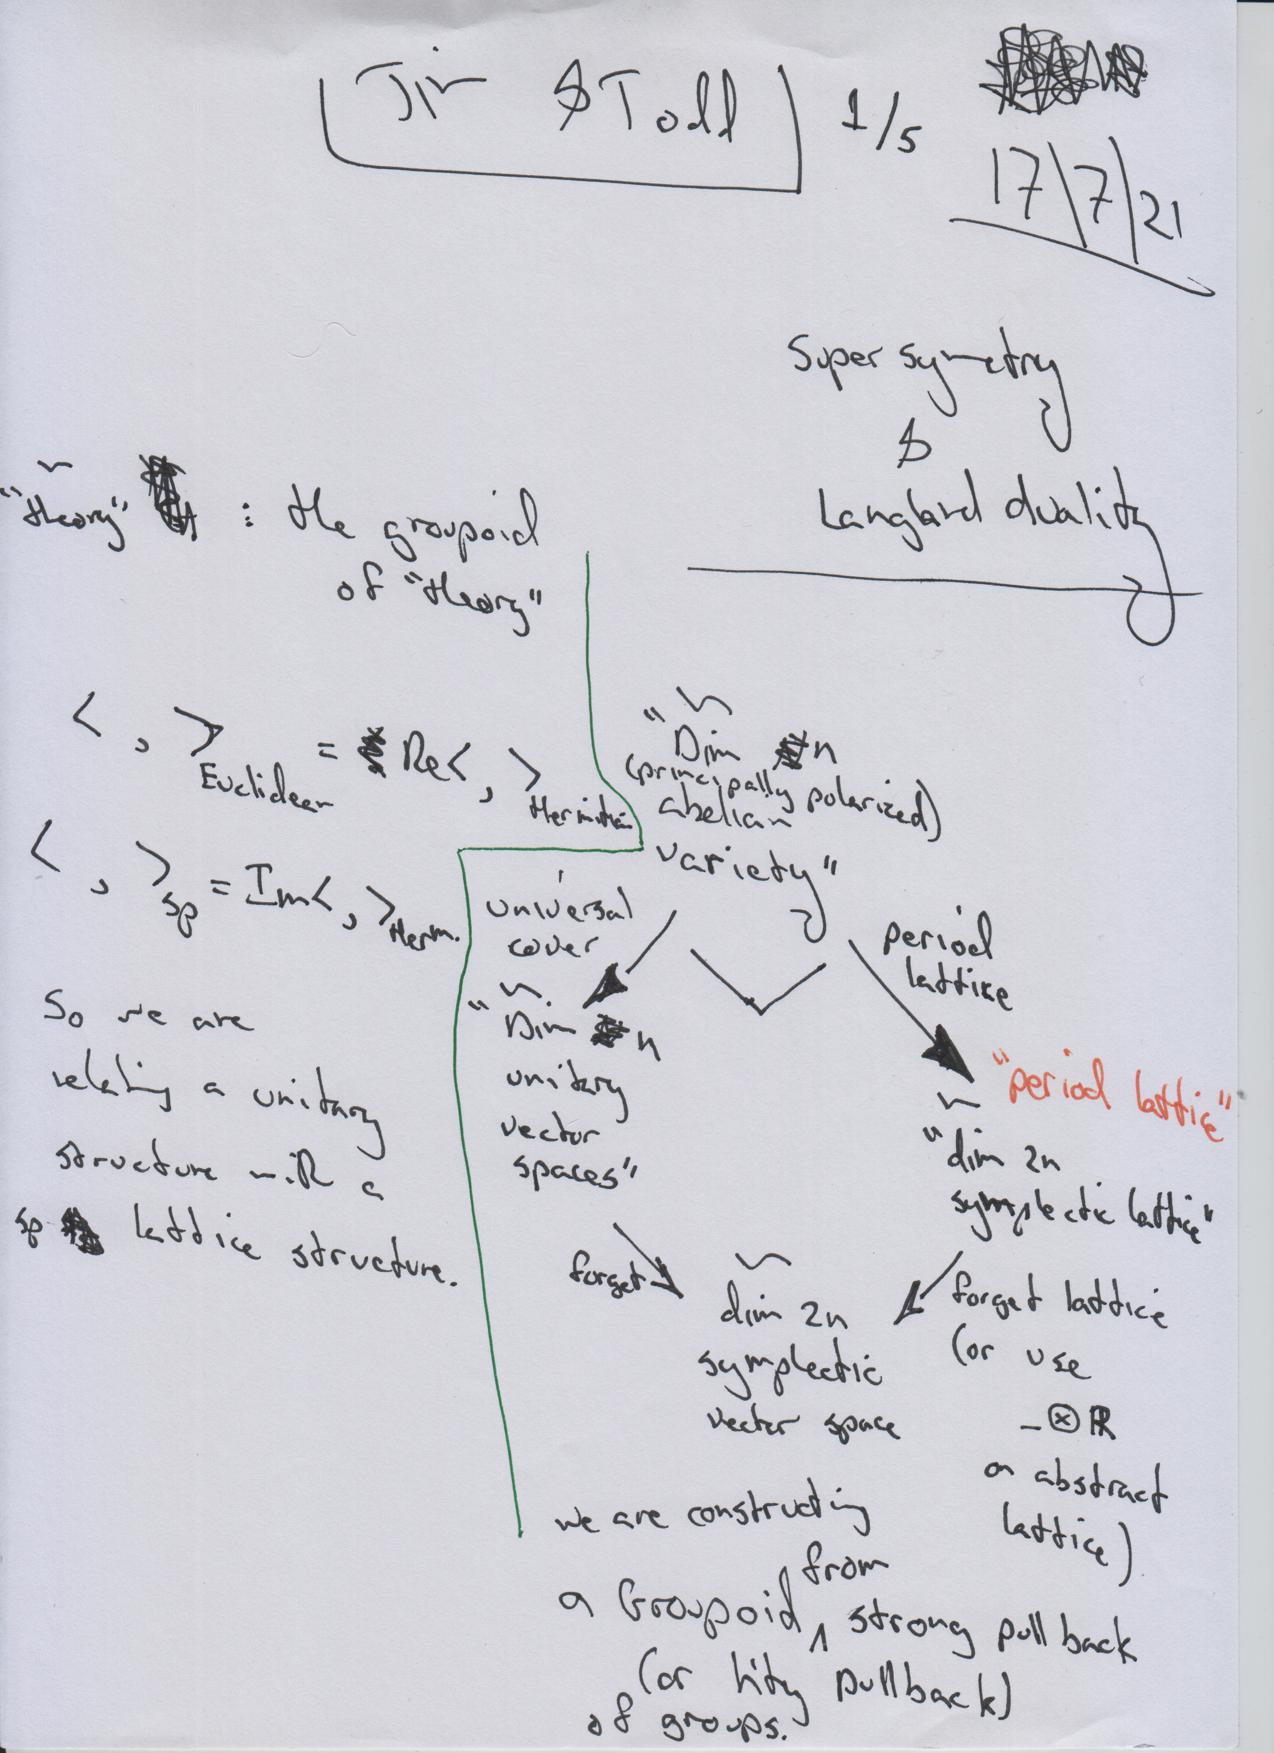 Jim & Todd 1/5
17/7/21
Super symmetry
&
Langland duality
"theory" : the groupoid
of "theory"
< , >Euclidean = Re< , >Hermitian
< , >sp = Im< , >Herm.
So we are
relating a unitary
structure with a
sp lattice structure.
"Dim n
(principally polarized)
abelian
variety"
universal
cover
period
lattice
"Dim n
unitary
vector
spaces"
"period lattice"
"dim 2n
symplectic lattice"
forget
dim 2n
symplectic
vector space
forget lattice
(or use
_⊗ℝ
on abstract
lattice)
we are constructing
a Groupoid, from strong pullback
(or h'ty pullback)
of groups.